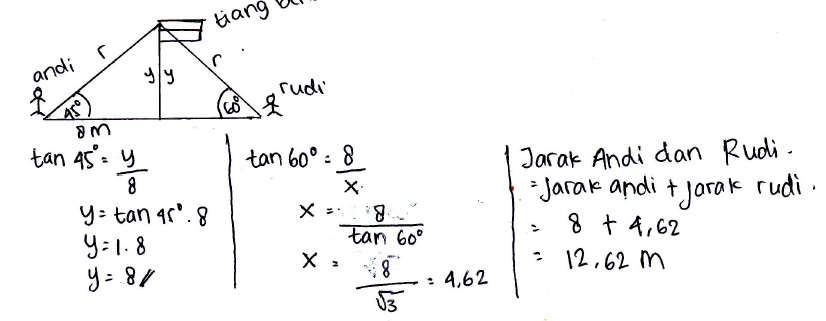 tiang
andi
r
r
rudi
y y
45°
60°
8 m
tan 45° = y/8
y = tan 45° . 8
y = 1 . 8
y = 8 //
tan 60° = 8/x
x = 8/tan 60°
x = 8/√3 = 4,62
Jarak Andi dan Rudi .
= Jarak andi + jarak rudi .
= 8 + 4,62
= 12,62 m